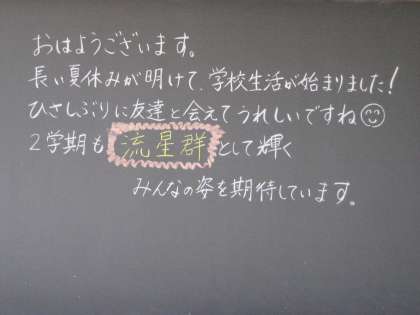 おはようございます。
長い夏休みが明けて、学校生活が始まりました!
ひさしぶりに友達と会えてうれしいですね😊
2学期も流星群として輝く
みんなの姿を期待しています。